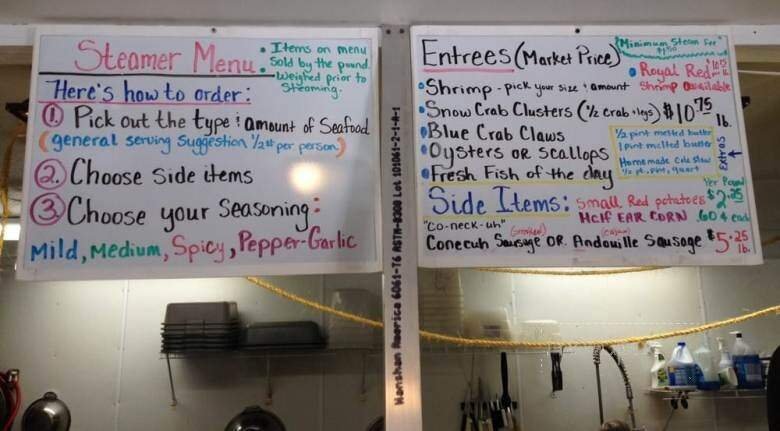 Steamer Menu
• Items on menu
Sold by the pound.
Weighed prior to
Steaming.
Here's how to order:
1. Pick out the type & amount of Seafood
(general serving suggestion 1/2# per person)
2. Choose Side items
3. Choose your Seasoning:
Mild, Medium, Spicy, Pepper-Garlic
Entrees (Market Price)
Minimum Steam Fee
• Royal Red
Shrimp available
• Shrimp - pick your size & amount
• Snow Crab Clusters (1/2 crab • legs) $10.75 lb.
• Blue Crab Claws
• Oysters OR Scallops
• Fresh Fish of the day
1/2 pint melted butter
1 pint melted butter
Homemade Cole Slaw
1/2 pt, pint, quart
Extras
Side Items: Small Red potatoes $2.25
Per Pound
Half EAR CORN .60¢ each
"Co-neck-uh" (smoked) (cajun)
Conecuh Sausage OR Andouille Sausage $5.25 lb.
Hanshan America 6061-T6 ASTM-B308 Lot 101061-2-1-A-1